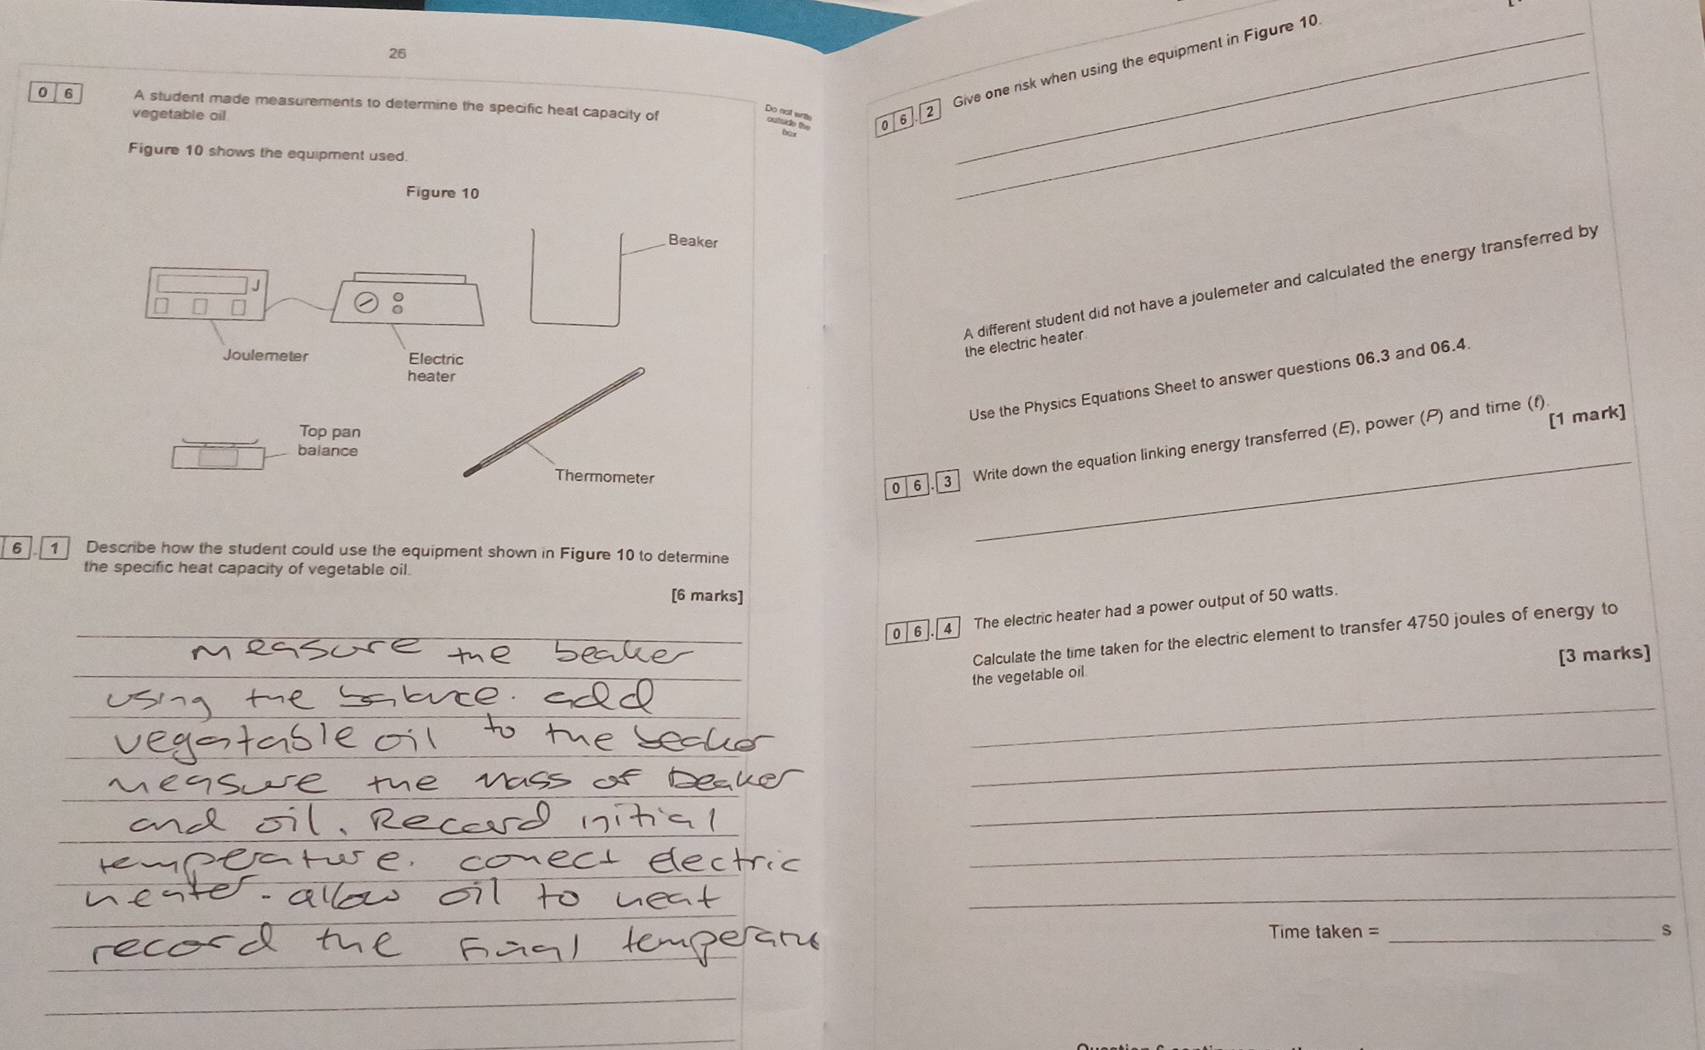 26
0 6 A student made measurements to determine the specific heat capacity of
vegetable oil.
Do not write
outside the
box
Figure 10 shows the equipment used.
Figure 10
Beaker
J
Joulemeter
Electric
heater
Top pan
balance
Thermometer
6 . 1 Describe how the student could use the equipment shown in Figure 10 to determine
the specific heat capacity of vegetable oil.
[6 marks]
measure the beaker
using the balance. add
vegatable oil to the beaker
measure the mass of beaker
and oil. Record initial
temperature. conect electric
heater. allow oil to heat
record the final temperatu
0 6 . 2 Give one risk when using the equipment in Figure 10.
A different student did not have a joulemeter and calculated the energy transferred by
the electric heater.
Use the Physics Equations Sheet to answer questions 06.3 and 06.4.
0 6 . 3 Write down the equation linking energy transferred (E), power (P) and time (t).
[1 mark]
0 6 . 4 The electric heater had a power output of 50 watts.
Calculate the time taken for the electric element to transfer 4750 joules of energy to
the vegetable oil.
[3 marks]
Time taken = s